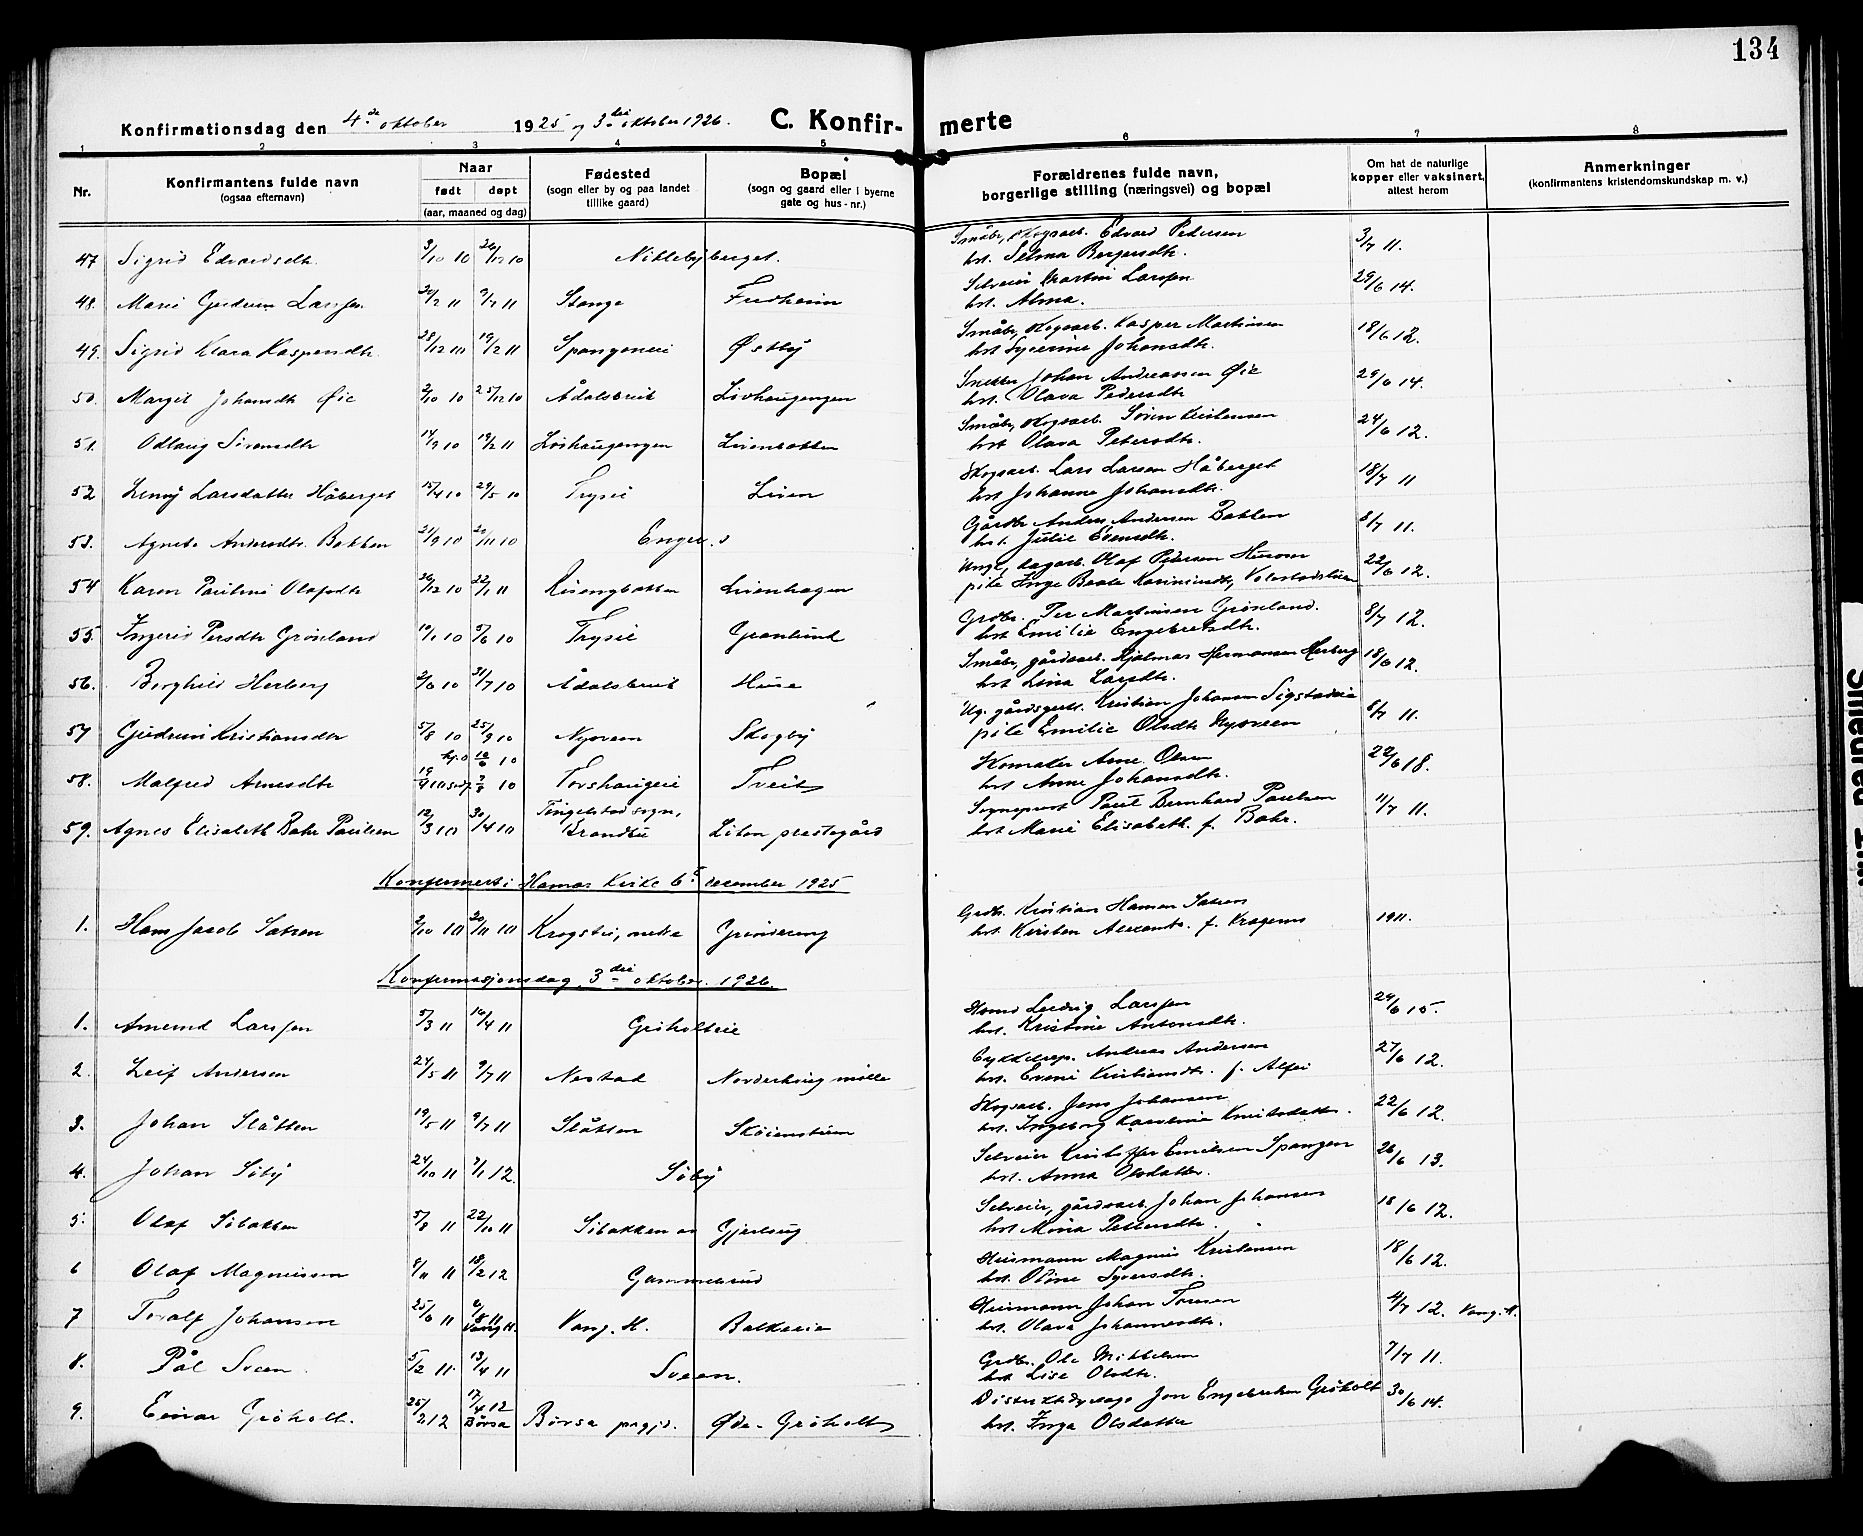 134
Konfirmationsdag den 4de oktober 1925 og 3die oktober 1926. C. Konfirmerte
1 2 3 4 5 6 7 8
Nr. Konfirmantens fulde navn (ogsaa efternavn) Naar født døpt (aar, maaned og dag) Fødested (sogn eller by og paa landet tillike gaard) Bopæl (sogn og gaard eller i byerne gate og hus-nr.) Forældrenes fulde navn, borgerlige stilling (næringsvei) og bopæl Om hat de naturlige kopper eller vaksinert, attest herom Anmerkninger (konfirmantens kristendomskundskap m. v.)
47 Sigrid Edvardsdtr. 3/10 10 26/12 10 Nittebyberget. Småbr., skogsarb. Edvard Pedersen 3/7 11.
hst. Selma Bergersdtr.
48. Marie Gudrun Larsen 20/2 11 9/7 11 Stange Fredheim Selveier Martin Larsen 29/6 14.
hst. Alma.
49. Sigrid Klara Kaspersdtr. 28/12 10 19/2 11 Spangeneie Østby Småbr., skogsarb. Kasper Martinsen 18/6 12.
hst. Syverine Johansdtr.
50. Margit Johansdtr Øie 2/10 10 25/12 10 Ådalsbruk Lövhaugengen Snekker Johan Andreassen Øie 29/6 14.
hst. Olava Pedersdtr
51. Odlaug Sörensdtr 14/9 10 19/2 11 Lövhaugengen Lienbakken Småbr., skogsarb. Sören Kristensen 24/6 12.
hst Olava Petersdtr.
52 Jenny Larsdatter Håberget 15/4 10 29/5 10 Trysil Lien Skogsarb. Lars Larsen Håberget 18/7 11
hst Johanne Johansdtr.
53. Agnete Andersdtr. Bakken 21/9 10 20/11 10 Enger.s Gårdbr Anders Andersen Bakken 8/7 11.
hst. Julie Evensdtr.
54 Karen Pauline Olafsdtr 26/12 10 22/1 11 Lienhagen Ungk., dagarb. Olaf Pedersen 22/6 12.
pike Inge Beate
55. Ingerid Persdtr Grönland 10/1 10 5/6 10 Trysil Granlund Grdbr. Per Martinsen Grönland. 8/7 12.
hst Emilie Engebretsdtr.
56. Borghild Herberg 2/6 10 31/7 10 Ådalsbruk Huse Småbr., gårdsarb. Hjalmar Hermansen Herberg 18/6 12.
hst Lina Larsdtr.
57 Gudrun Kristiansdtr 5/8 10 25/9 10 Nysveen Skogby Ug. gårdsgutt. Kristian Johansen Sigstadeie 8/7 11.
pike Emilie Olsdtr Nysveen
58. Malfred Arnesdtr 19/4 10 hj.d. 12/6 10 Torshaugeie Tveit Skomaker Arne Olsen 22/6 18.
hst Anne Johansdtr.
59. Agnes Elisabeth Bahr Paulsen 12/3 10 30/4 10 Tingelstad sogn, Brandbu Löten prestegård Sogneprest Paul Bernhard Paulsen 11/7 11.
hst Marie Elisabeth f. Bahr.
Konfirmert i Hamar kirke 6te december 1925
1. Hans Jacob Sætren 2/10 10 20/11 10 nedre Grindereng Grdbr. Kristian Hansen Sætren 1911.
hst. Kirsten f. Kragerus
Konfirmasjonsdag 3die oktober 1926.
1. Amund Larssen 5/3 11 16/4 11 Gröholteie Ludvig Larssen 29/6 15.
hst. Kristine Antonsdtr.
2. Leif Andersen 24/5 11 9/7 11 Nestad Norderhaug mölle Cykkelrep. Andreas Andersen 27/6 12.
hst. Kristiansdtr. f.
3. Johan Slåtten 19/5 11 9/7 11 Slåtten Skoienstuen Skogsarb. Jens Johansen 22/6 12.
hst. Ingeborg Karoline Knutsdatter.
4. Johan Söby 24/10 11 7/1 12. Söby Selveier Kristoffer Emilsen Spangen 26/6 13.
hst. Anna Olsdatter.
5. Olaf Söbakken 5/8 11 22/10 11 Söbakken Gjerlaug Selveier, gårdsarb. Johan Johansen 18/6 12.
hst Petersdtr.
6 Olaf Magnussen 9/11 11 18/2 12 Gammelsrud Husmann Magnus Kristensen 18/6 12.
hst. Oline Syversdtr.
7 Toralf Johansen 25/6 11 6/8 11 Vang H. Vang. H. Bakkeeie Husmann Johan Toresen 4/7 12. Vang. H.
hst. Olava Johannesdtr.
8. Pål Sveen. 5/2 11. 13/4 11 Sveen. Grdbr. Ole Mikkelsen 7/7 11.
hst Lise Olsdtr.
9. Einar Gröholt. 25/2 12 17/4 12 Börsa Börsa prgjd. Øde-Gröholt Distriktsdyrlæge Jon Engebretsen Gröholt 30/6 14.
hst. Inga Olsdatter